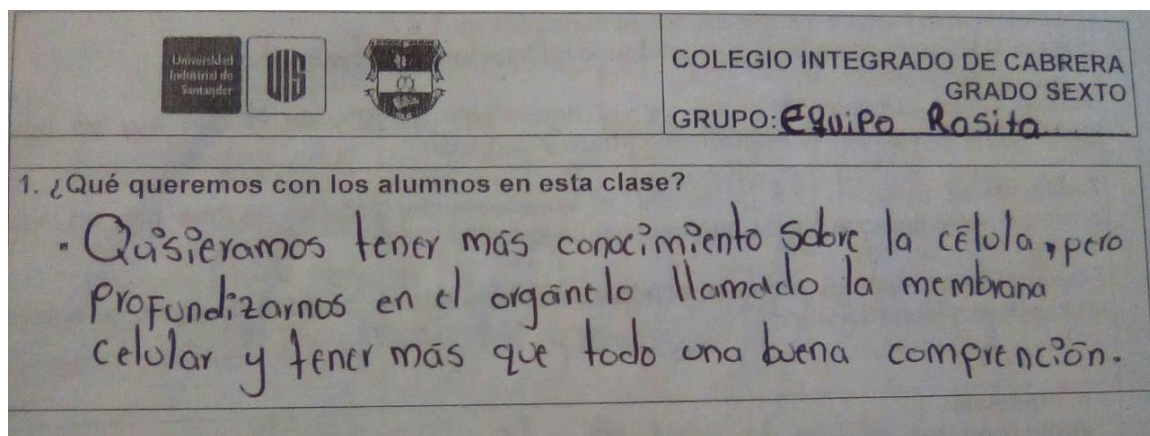 Universidad
Industrial de
Santander
UIS
COLEGIO INTEGRADO DE CABRERA
GRADO SEXTO
GRUPO: EQuiPo Rosita
1. ¿Qué queremos con los alumnos en esta clase?
- Quisieramos tener más conocimiento sobre la célula, pero
profundizarnos en el orgánelo llamado la membrana
celular y tener más que todo una buena comprención.